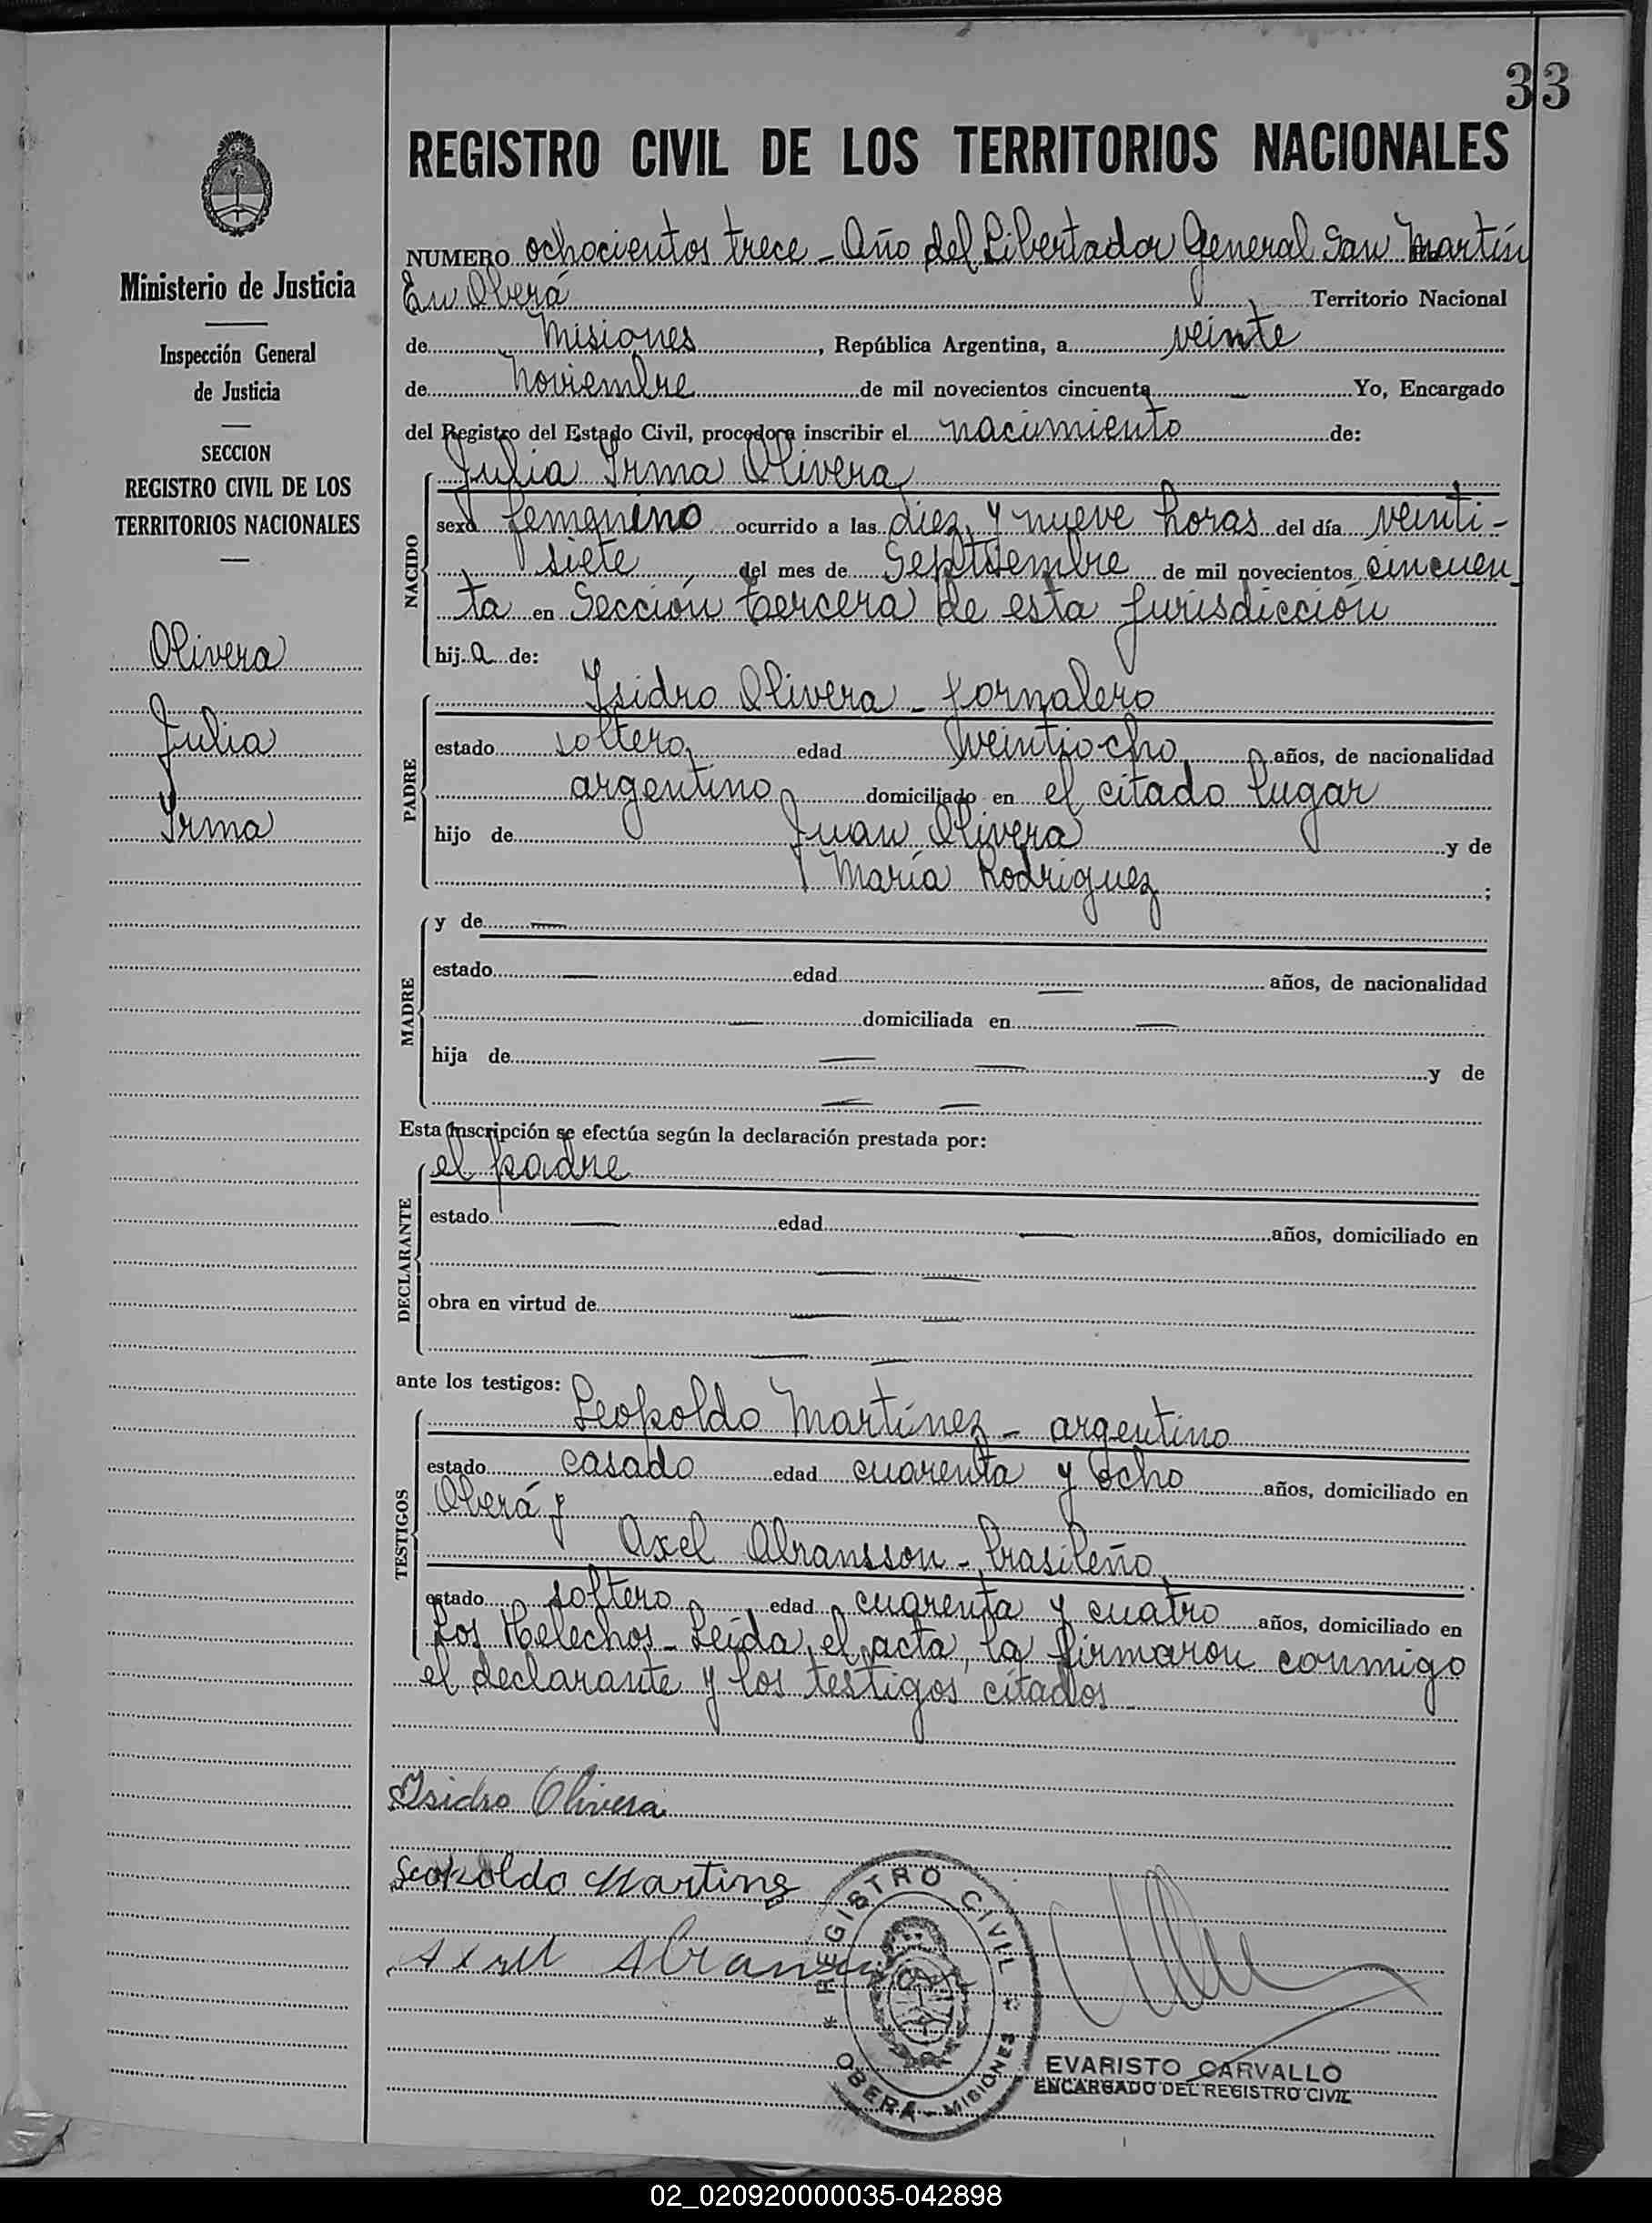 33
REGISTRO CIVIL DE LOS TERRITORIOS NACIONALES
Ministerio de Justicia
Inspección General
de Justicia
SECCION
REGISTRO CIVIL DE LOS
TERRITORIOS NACIONALES
Olivera
Julia
Irma
NUMERO ochocientos trece - Año del Libertador General San Martín
En Oberá Territorio Nacional
de Misiones, República Argentina, a veinte
de Noviembre de mil novecientos cincuenta - Yo, Encargado
del Registro del Estado Civil, procedo a inscribir el nacimiento de:
NACIDO
Julia Irma Olivera
sexo femenino ocurrido a las diez y nueve horas del día veinti-
siete del mes de Septiembre de mil novecientos cincuen-
ta en Sección tercera de esta jurisdicción
hij a de:
PADRE
Isidro Olivera - jornalero
estado soltero edad veintiocho años, de nacionalidad
argentino domiciliado en el citado lugar
hijo de Juan Olivera y de
María Rodriguez ;
MADRE
y de —
estado — edad — años, de nacionalidad
— domiciliada en —
hija de — — y de
— —
Esta inscripción se efectúa según la declaración prestada por:
DECLARANTE
el padre
estado — edad — años, domiciliado en
— —
obra en virtud de — —
— —
ante los testigos:
TESTIGOS
Leopoldo Martínez - argentino
estado casado edad cuarenta y ocho años, domiciliado en
Oberá y
Axel Abransson - brasileño
estado soltero edad cuarenta y cuatro años, domiciliado en
Los Helechos - Leída el acta, la firmaron conmigo
el declarante y los testigos citados
Isidro Olivera
Leopoldo Martinz
REGISTRO CIVIL
OBERÁ - MISIONES
EVARISTO CARVALLO
ENCARGADO DEL REGISTRO CIVIL
02_020920000035-042898